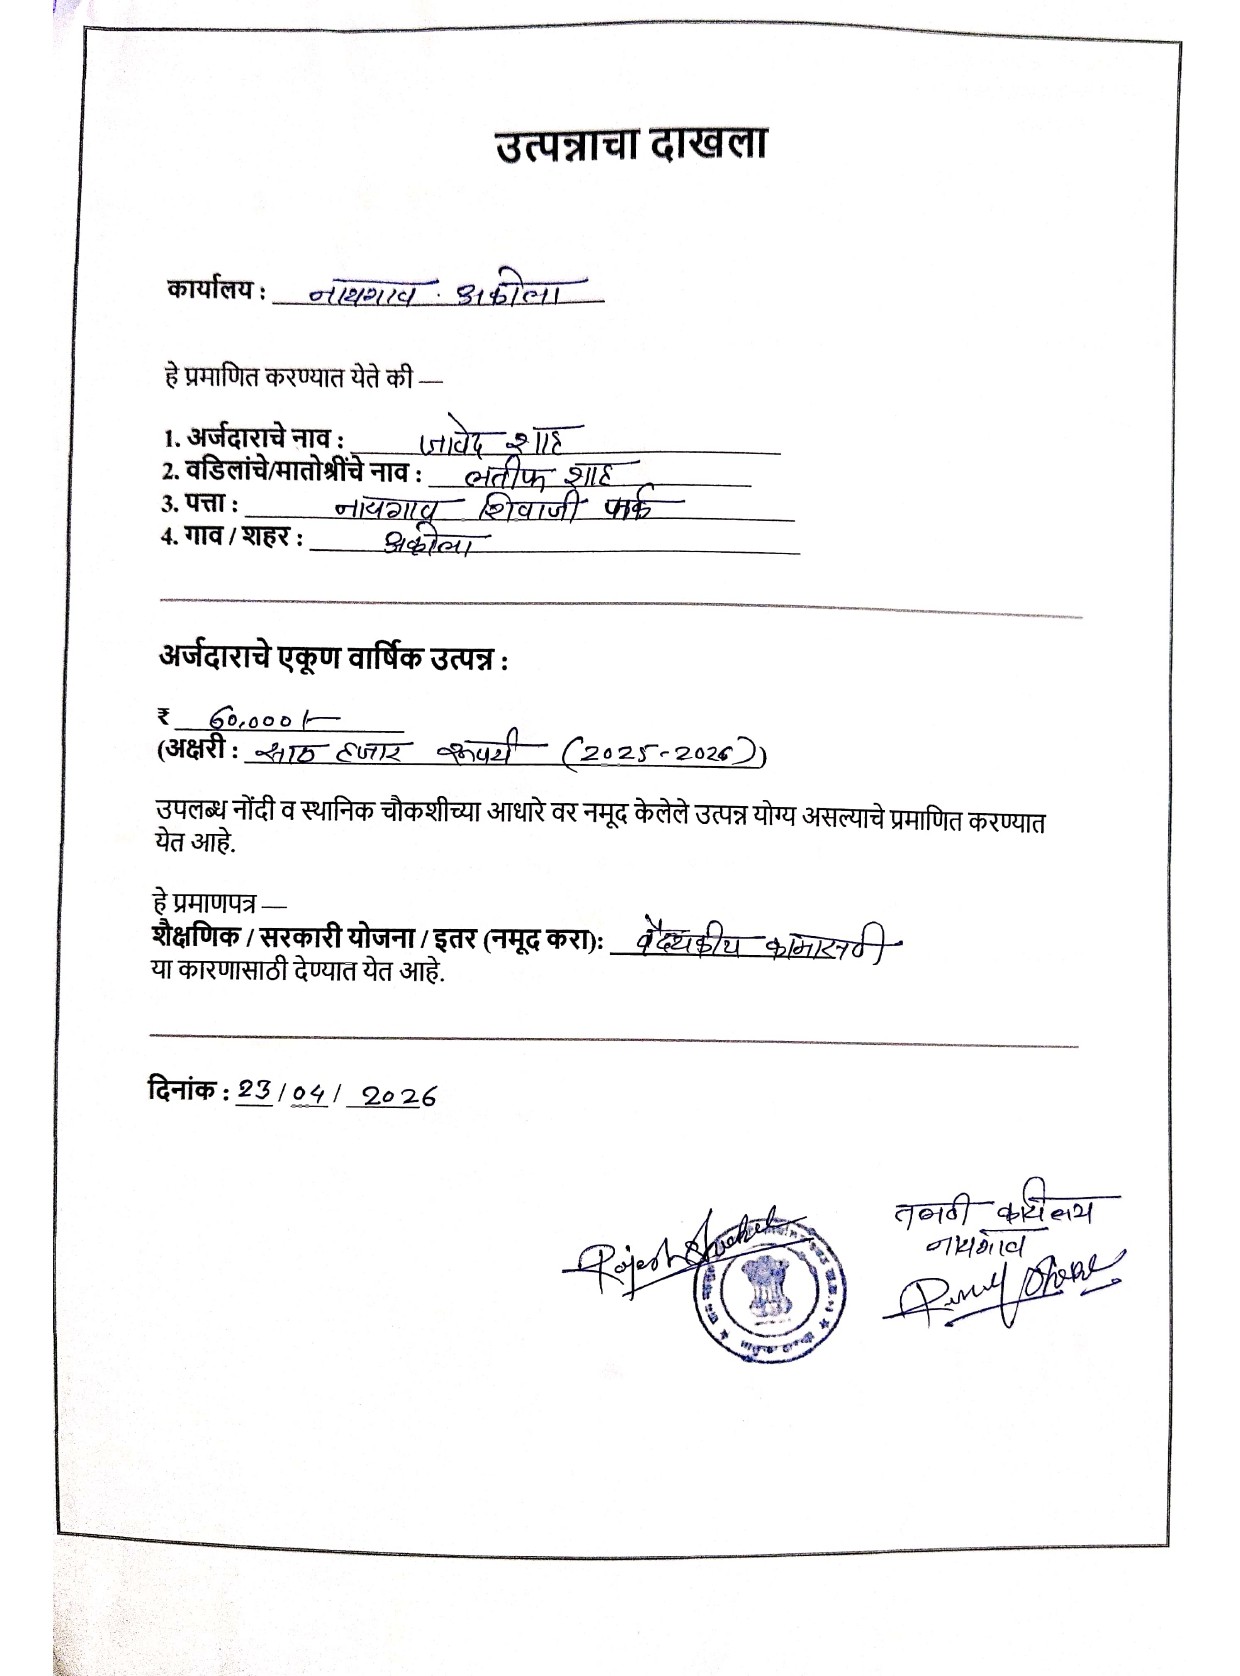 उत्पन्नाचा दाखला
कार्यालय : नायगाव . अकोला
हे प्रमाणित करण्यात येते की —
1. अर्जदाराचे नाव : जावेद शाह
2. वडिलांचे/मातोश्रींचे नाव : लतीफ शाह
3. पत्ता : नायगाव शिवाजी पार्क
4. गाव / शहर : अकोला
अर्जदाराचे एकूण वार्षिक उत्पन्न :
₹ 60,000/-
(अक्षरी : साठ हजार रूपये (2025-2026))
उपलब्ध नोंदी व स्थानिक चौकशीच्या आधारे वर नमूद केलेले उत्पन्न योग्य असल्याचे प्रमाणित करण्यात
येत आहे.
हे प्रमाणपत्र —
शैक्षणिक / सरकारी योजना / इतर (नमूद करा): वैद्यकीय कामासाठी
या कारणासाठी देण्यात येत आहे.
दिनांक : 23/04/2026
तलाठी कार्यालय
नायगाव
Rajesh